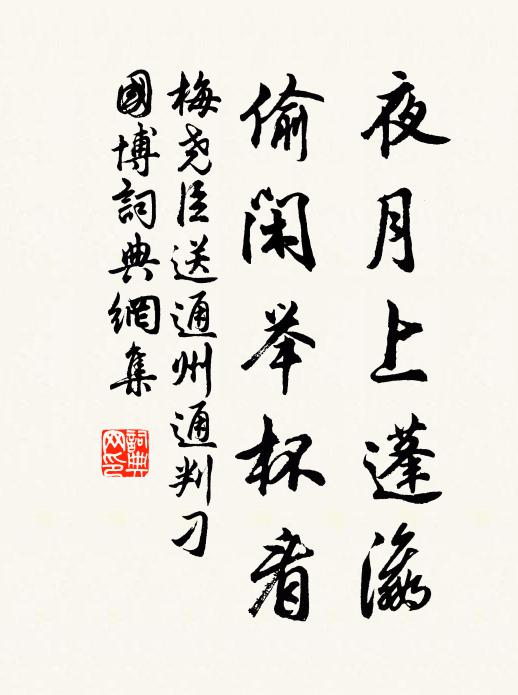 夜月上蓬瀛
偷闲举杯看
梅尧臣送通州通判刁
國博詞典網集
詞典网印